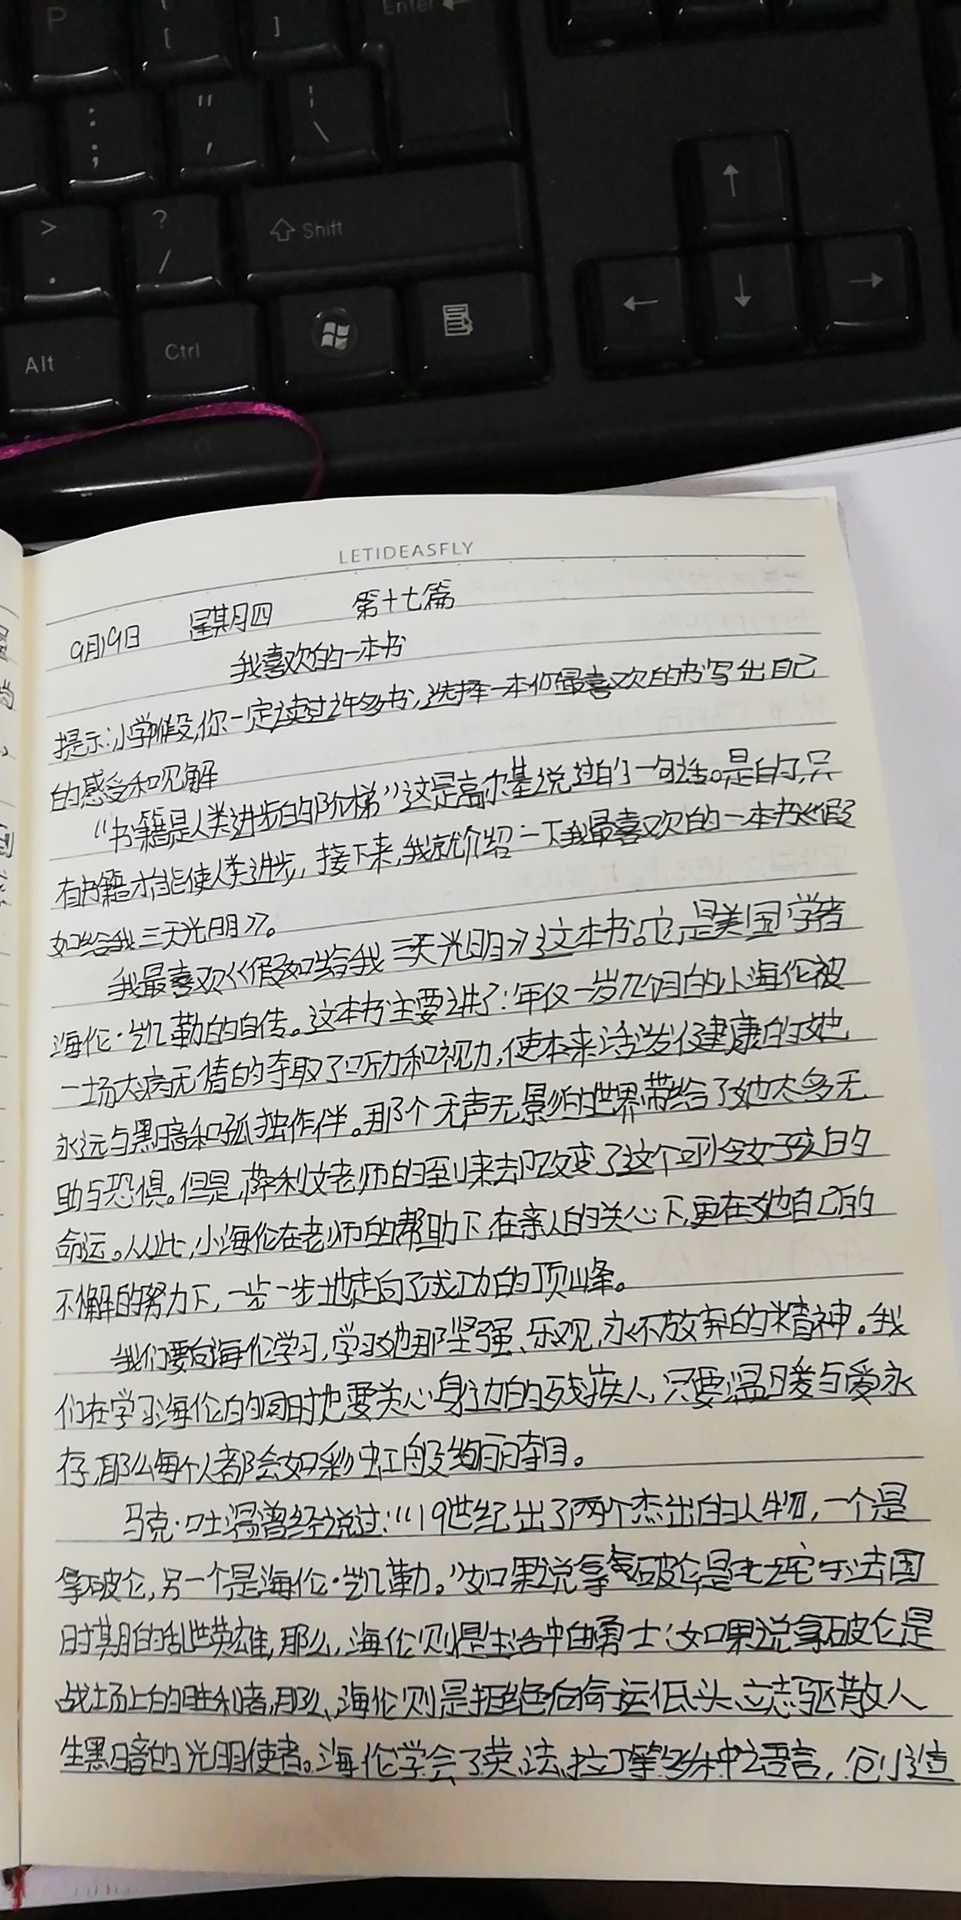 P
{
[
}
]
Enter
:
;
"
,
¦
\
>
.
?
/
Shift
Alt
Ctrl
LETIDEASFLY
9月19日 星期四 第十七篇
我喜欢的一本书
提示:小学阶段,你一定读过许多书,选择一本你最喜欢的书写出自己
的感受和见解
“书籍是人类进步的阶梯”这是高尔基说过的一句话。是的,只
有书籍才能使人类进步,接下来,我就介绍一下我最喜欢的一本书《假
如给我三天光明》。
我最喜欢《假如给我三天光明》这本书。它是美国学者
海伦·凯勒的自传。这本书主要讲了:年仅一岁几个月的小海伦被
一场大病无情的夺取了听力和视力,使本来活泼健康的她
永远与黑暗和孤独作伴。那个无声无影的世界带给了她太多无
助与恐惧。但是,萨利文老师的到来却改变了这个可怜女孩的
命运。从此,小海伦在老师的帮助下,在亲人的关心下,更在她自己的
不懈的努力下,一步一步地走向了成功的顶峰。
我们要向海伦学习,学习她那坚强、乐观,永不放弃的精神。我
们在学习海伦的同时也要关心身边的残疾人,只要温暖与爱永
存,那么每个人都会如彩虹般绚丽夺目。
马克·吐温曾经说过:“19世纪出了两个杰出的人物,一个是
拿破仑,另一个是海伦·凯勒。”如果说拿破仑是法国
时期的乱世英雄,那么,海伦则是生活中的勇士;如果说拿破仑是
战场上的胜利者,那么,海伦则是拒绝向命运低头、立志驱散人
生黑暗的光明使者。海伦学会了英、法、拉丁等多种语言,创造